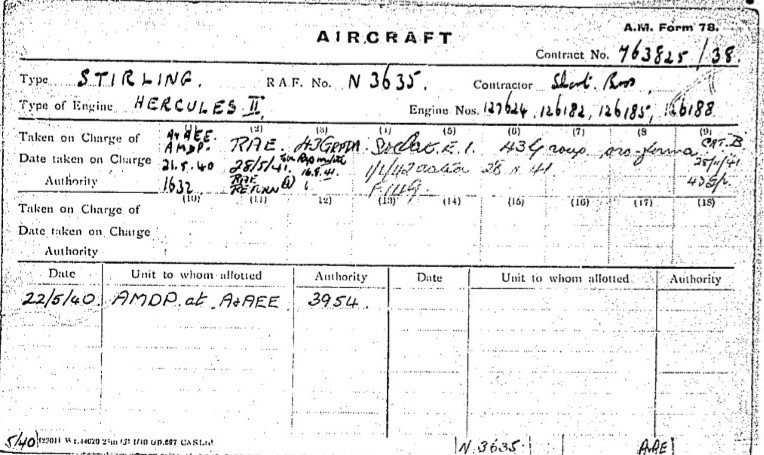 A.M. Form 78.
AIRCRAFT
Contract No. 763825/38.
Type STIRLING. R.A.F. No. N3635. Contractor Short Bros
Type of Engine HERCULES II. Engine Nos. 127624, 126182, 126185, 126188
(1) (2) (3) (4) (5) (6) (7) (8) (9)
Taken on Charge of A&AEE. AMDP. RAE. 43 Group pro-forma CAT. B.
Date taken on Charge 21.5.40 28/5/41. 16.9.41. 1/1/42 41 25/11/41
Authority 1632 RAE RETURN 43 Gp.
(10) (11) 12) (13) (14) (15) (16) (17) (18)
Taken on Charge of
Date taken on Charge
Authority
Date Unit to whom allotted Authority Date Unit to whom allotted Authority
22/5/40 AMDP. at A&AEE 3954.
5/40
N.3635. AAE